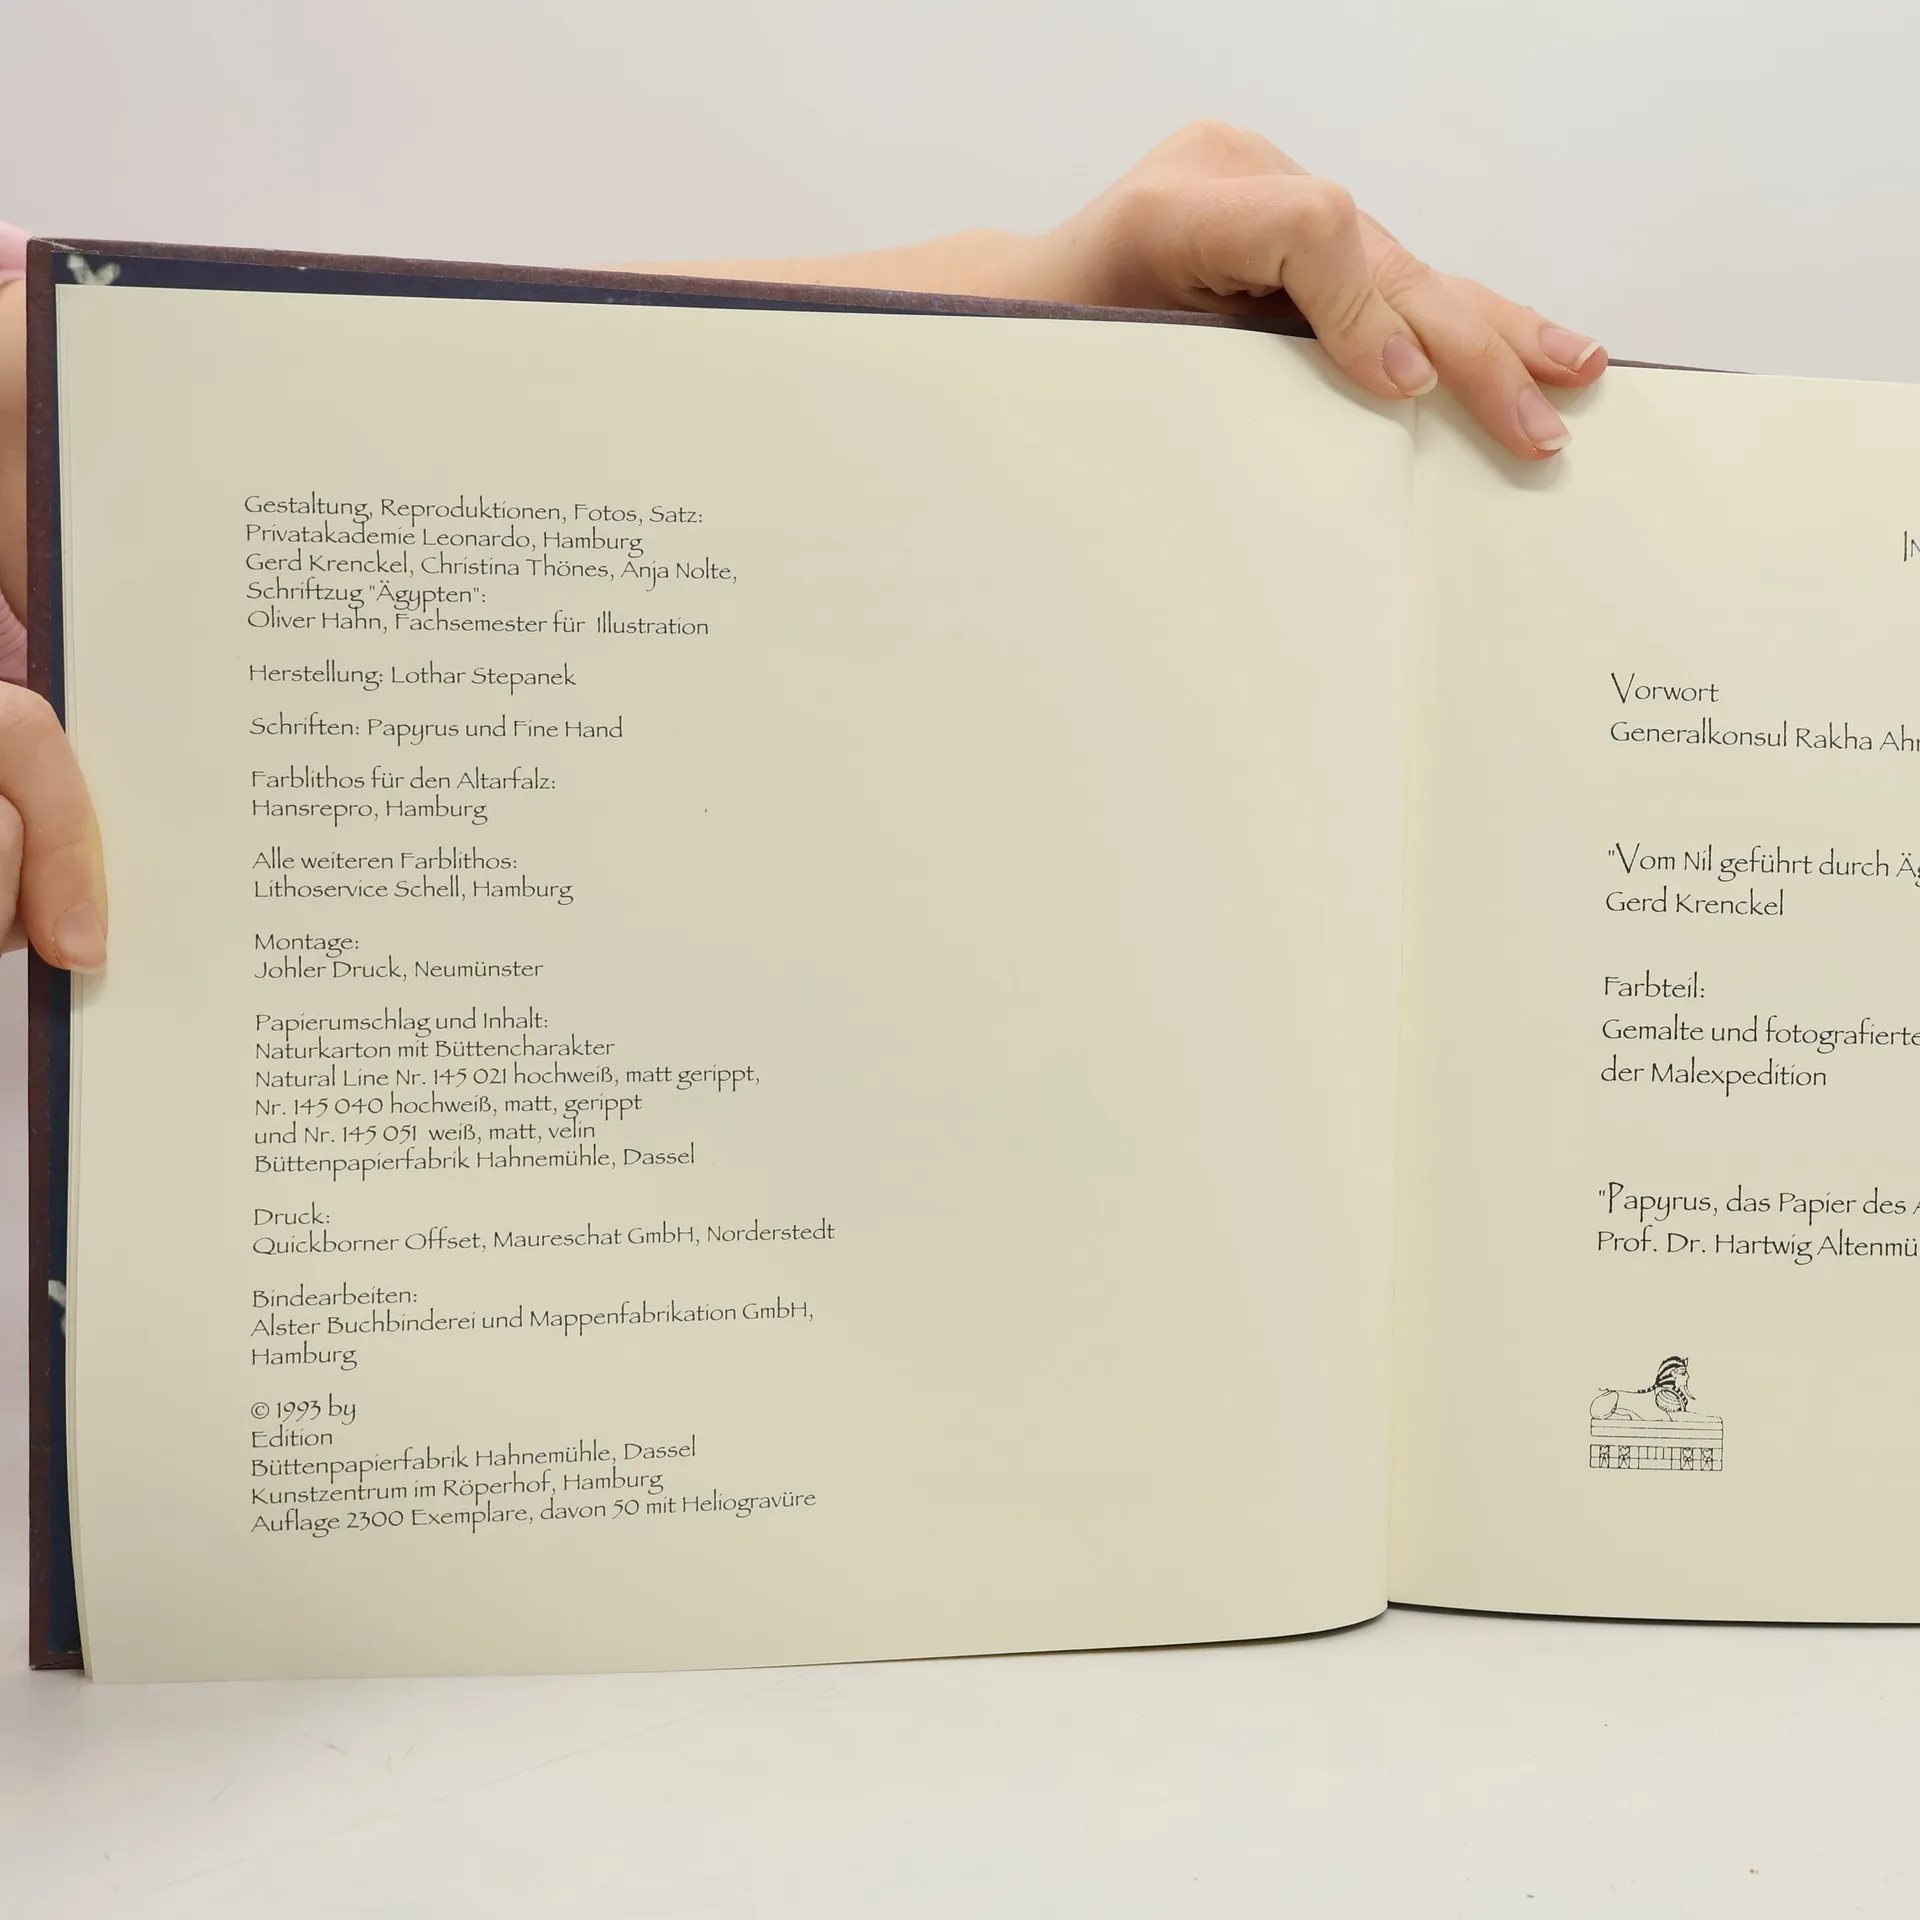 Gestaltung, Reproduktionen, Fotos, Satz:
Privatakademie Leonardo, Hamburg
Gerd Krenckel, Christina Thönes, Anja Nolte,
Schriftzug "Ägypten":
Oliver Hahn, Fachsemester für Illustration
Herstellung: Lothar Stepanek
Schriften: Papyrus und Fine Hand
Farblithos für den Altarfalz:
Hansrepro, Hamburg
Alle weiteren Farblithos:
Lithoservice Schell, Hamburg
Montage:
Johler Druck, Neumünster
Papierumschlag und Inhalt:
Naturkarton mit Büttencharakter
Natural Line Nr. 145 021 hochweiß, matt gerippt,
Nr. 145 040 hochweiß, matt, gerippt
und Nr. 145 051 weiß, matt, velin
Büttenpapierfabrik Hahnemühle, Dassel
Druck:
Quickborner Offset, Maureschat GmbH, Norderstedt
Bindearbeiten:
Alster Buchbinderei und Mappenfabrikation GmbH,
Hamburg
© 1993 by
Edition
Büttenpapierfabrik Hahnemühle, Dassel
Kunstzentrum im Röperhof, Hamburg
Auflage 2300 Exemplare, davon 50 mit Heliogravüre
Vorwort
Generalkonsul Rakha
"Vom Nil geführt durch
Gerd Krenckel
Farbteil:
Gemalte und fotografierte
der Malexpedition
"Papyrus, das Papier des
Prof. Dr. Hartwig